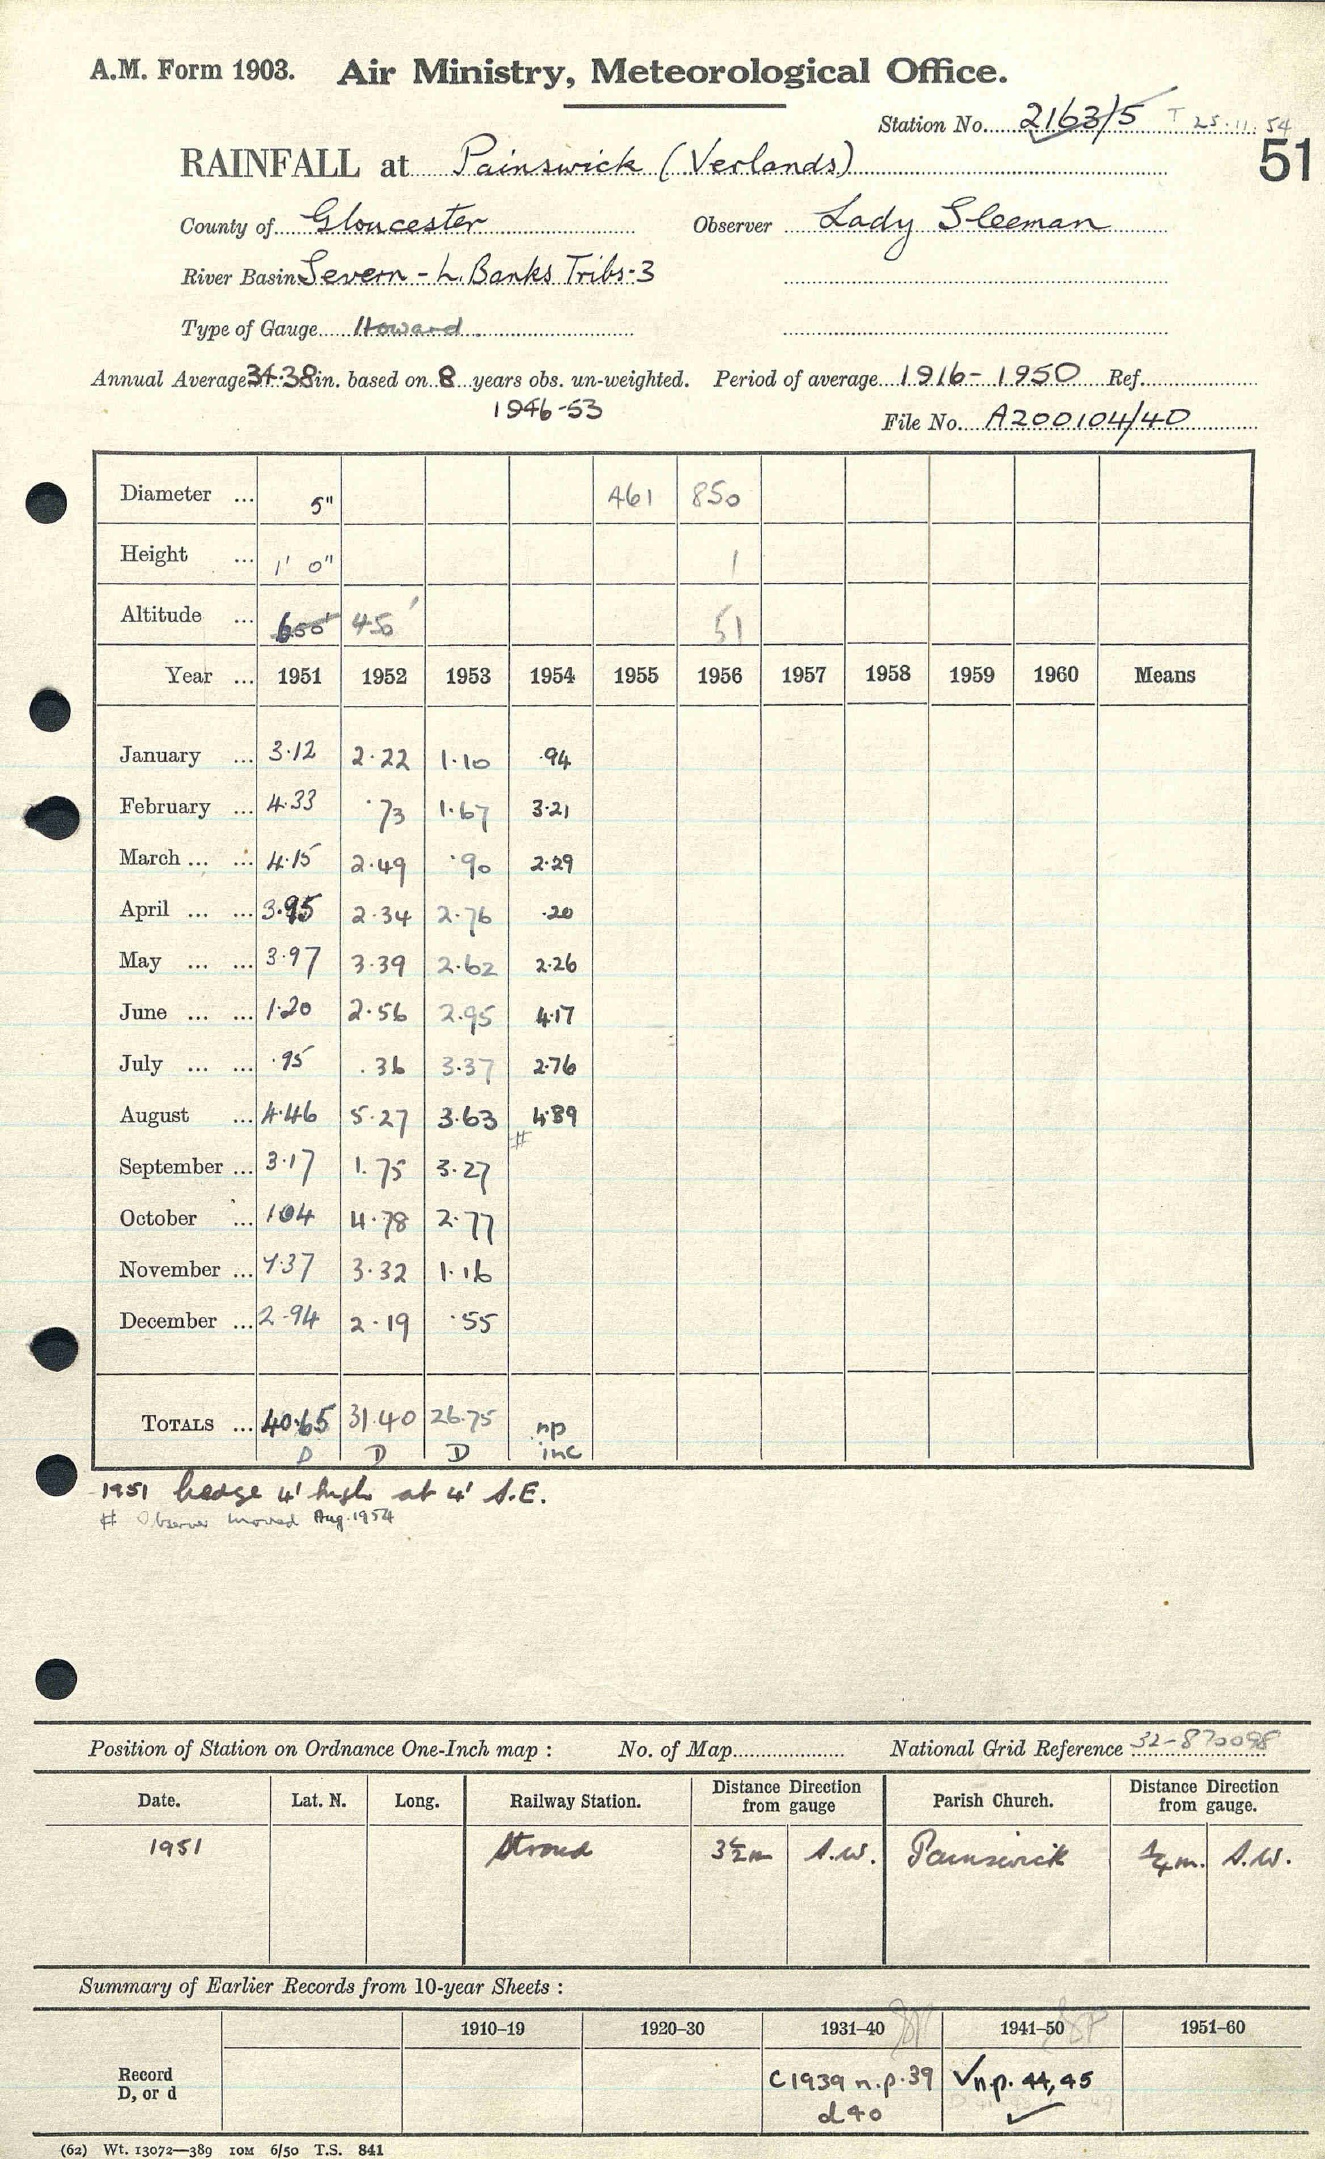 A.M. Form 1903. Air Ministry, Meteorological Office.
Station No. 2163/5 T 25.11.54
51
RAINFALL at Painswick (Verlands)
County of Gloucester Observer Lady Sleeman
River Basin Severn - L. Banks Tribs-3
Type of Gauge Howard
Annual Average 34.38 in. based on 8 years obs. un-weighted. Period of average 1916-1950 Ref.
1946-53
File No. A200104/40
Diameter ... 5" 461 850
Height ... 1' 0" 1
Altitude ... 600' 450' 51
Year ... 1951 1952 1953 1954 1955 1956 1957 1958 1959 1960 Means
January ... 3.12 2.22 1.10 .94
February ... 4.33 .73 1.67 3.21
March ... ... 4.15 2.49 .90 2.29
April ... ... 3.95 2.34 2.76 .20
May ... ... 3.97 3.39 2.62 2.26
June ... ... 1.20 2.56 2.95 4.17
July ... ... .95 .36 3.37 2.76
August ... 4.46 5.27 3.63 4.89
#
September ... 3.17 1.75 3.27
October ... 1.04 4.78 2.77
November ... 7.37 3.32 1.16
December ... 2.94 2.19 .55
TOTALS ... 40.65 31.40 26.75 np
D D D inc
1951 hedge 4' high at 4' S.E.
# Observer moved Aug. 1954
Position of Station on Ordnance One-Inch map : No. of Map National Grid Reference 32-870098
Date. Lat. N. Long. Railway Station. Distance Direction from gauge Parish Church. Distance Direction from gauge.
1951 Stroud 3½m S.W. Painswick ¼m. S.W.
Summary of Earlier Records from 10-year Sheets :
1910–19 1920–30 1931–40 1941–50 1951–60
Record D, or d C1939 n.p.39 ✓n.p. 44,45
d40 ✓
(62) Wt. 13072—389 10M 6/50 T.S. 841